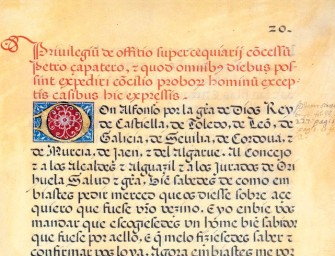 20.
Privilegiũ de offitio supercequiarij cõcessũ
Petro capatero, et quod omnibus diebus pos
sint expediri cõcilio proborũ hominũ excep
tis casibus hic expressis.
Don Alfonso por la gra de Dios Rey
de Castiella, de Toledo, de Leõ, de
Galicia, de Sevilia, de Cordoua, et
de Murcia, de Jaen, et del Algarue. Al Concejo
et a los Alcaldes et Alguazil et a los Jurados de Ori
huela Salud et gra, Biẽ sabedes de como em
biastes pedir merced que os diesse sobre ace
quiero que fuese uro vezino. Et yo enbie vos
mandar que escogiesedes un home biẽ sabidor
que fuese por aello, et q melo fiziesedes saber et
confirmar vos lo ya. Agora embiastes me dizir